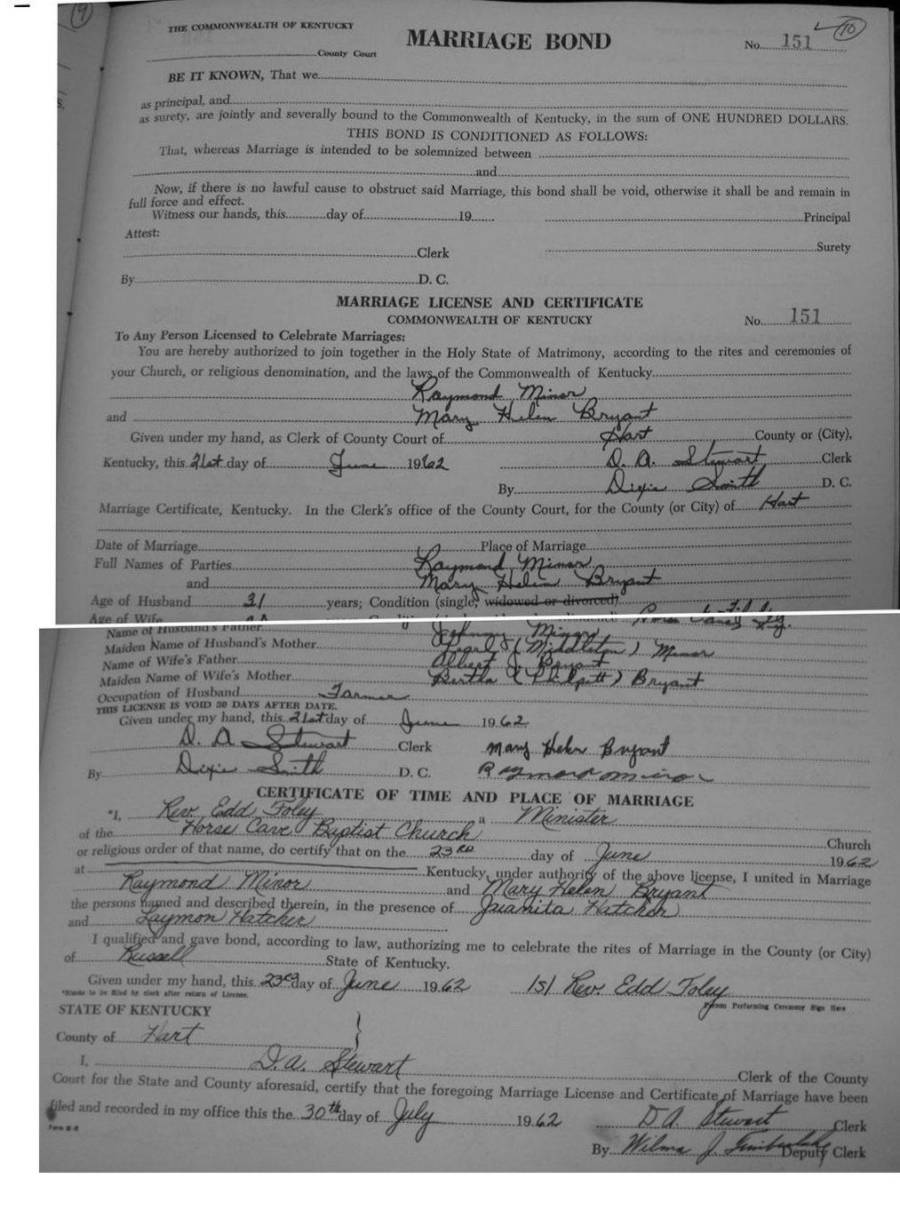 9
10
THE COMMONWEALTH OF KENTUCKY
County Court
MARRIAGE BOND
No. 151
BE IT KNOWN, That we
as principal, and
as surety, are jointly and severally bound to the Commonwealth of Kentucky, in the sum of ONE HUNDRED DOLLARS.
THIS BOND IS CONDITIONED AS FOLLOWS:
That, whereas Marriage is intended to be solemnized between
and
Now, if there is no lawful cause to obstruct said Marriage, this bond shall be void, otherwise it shall be and remain in
full force and effect.
Witness our hands, this day of 19 Principal
Attest:
Clerk Surety
By D. C.
MARRIAGE LICENSE AND CERTIFICATE
COMMONWEALTH OF KENTUCKY
No. 151
To Any Person Licensed to Celebrate Marriages:
You are hereby authorized to join together in the Holy State of Matrimony, according to the rites and ceremonies of
your Church, or religious denomination, and the laws of the Commonwealth of Kentucky
Raymond Minor
and Mary Helen Bryant
Given under my hand, as Clerk of County Court of Hart County or (City),
Kentucky, this 21st day of June 1962 D. A. Stewart Clerk
By Dixie Smith D. C.
Marriage Certificate, Kentucky. In the Clerk's office of the County Court, for the County (or City) of Hart
Date of Marriage Place of Marriage
Full Names of Parties Raymond Minor
and Mary Helen Bryant
Age of Husband 31 years; Condition (single, widowed or divorced)
Age of Wife
Name of Husband's Father Johnny Minor
Maiden Name of Husband's Mother Pearl (Middleton) Minor
Name of Wife's Father Albert J. Bryant
Maiden Name of Wife's Mother Bertha (Philpott) Bryant
Occupation of Husband Farmer
THIS LICENSE IS VOID 30 DAYS AFTER DATE.
Given under my hand, this 21st day of June 1962
D. A. Stewart Clerk Mary Helen Bryant
By Dixie Smith D. C. Raymond Minor
CERTIFICATE OF TIME AND PLACE OF MARRIAGE
*I, Rev. Edd Foley a Minister
of the Horse Cave Baptist Church Church
or religious order of that name, do certify that on the 23RD day of June 1962
at Kentucky, under authority of the above license, I united in Marriage
Raymond Minor and Mary Helen Bryant
the persons named and described therein, in the presence of Juanita Hatcher
and Laymon Hatcher
I qualified and gave bond, according to law, authorizing me to celebrate the rites of Marriage in the County (or City)
of Russell State of Kentucky.
Given under my hand, this 23rd day of June 1962 /s/ Rev. Edd Foley
*Blanks to be filled by clerk after return of License. Person Performing Ceremony Sign Here
STATE OF KENTUCKY
County of Hart
I, D.A. Stewart Clerk of the County
Court for the State and County aforesaid, certify that the foregoing Marriage License and Certificate of Marriage have been
filed and recorded in my office this the 30th day of July 1962 D.A. Stewart Clerk
By Wilma J. Timberlake Deputy Clerk